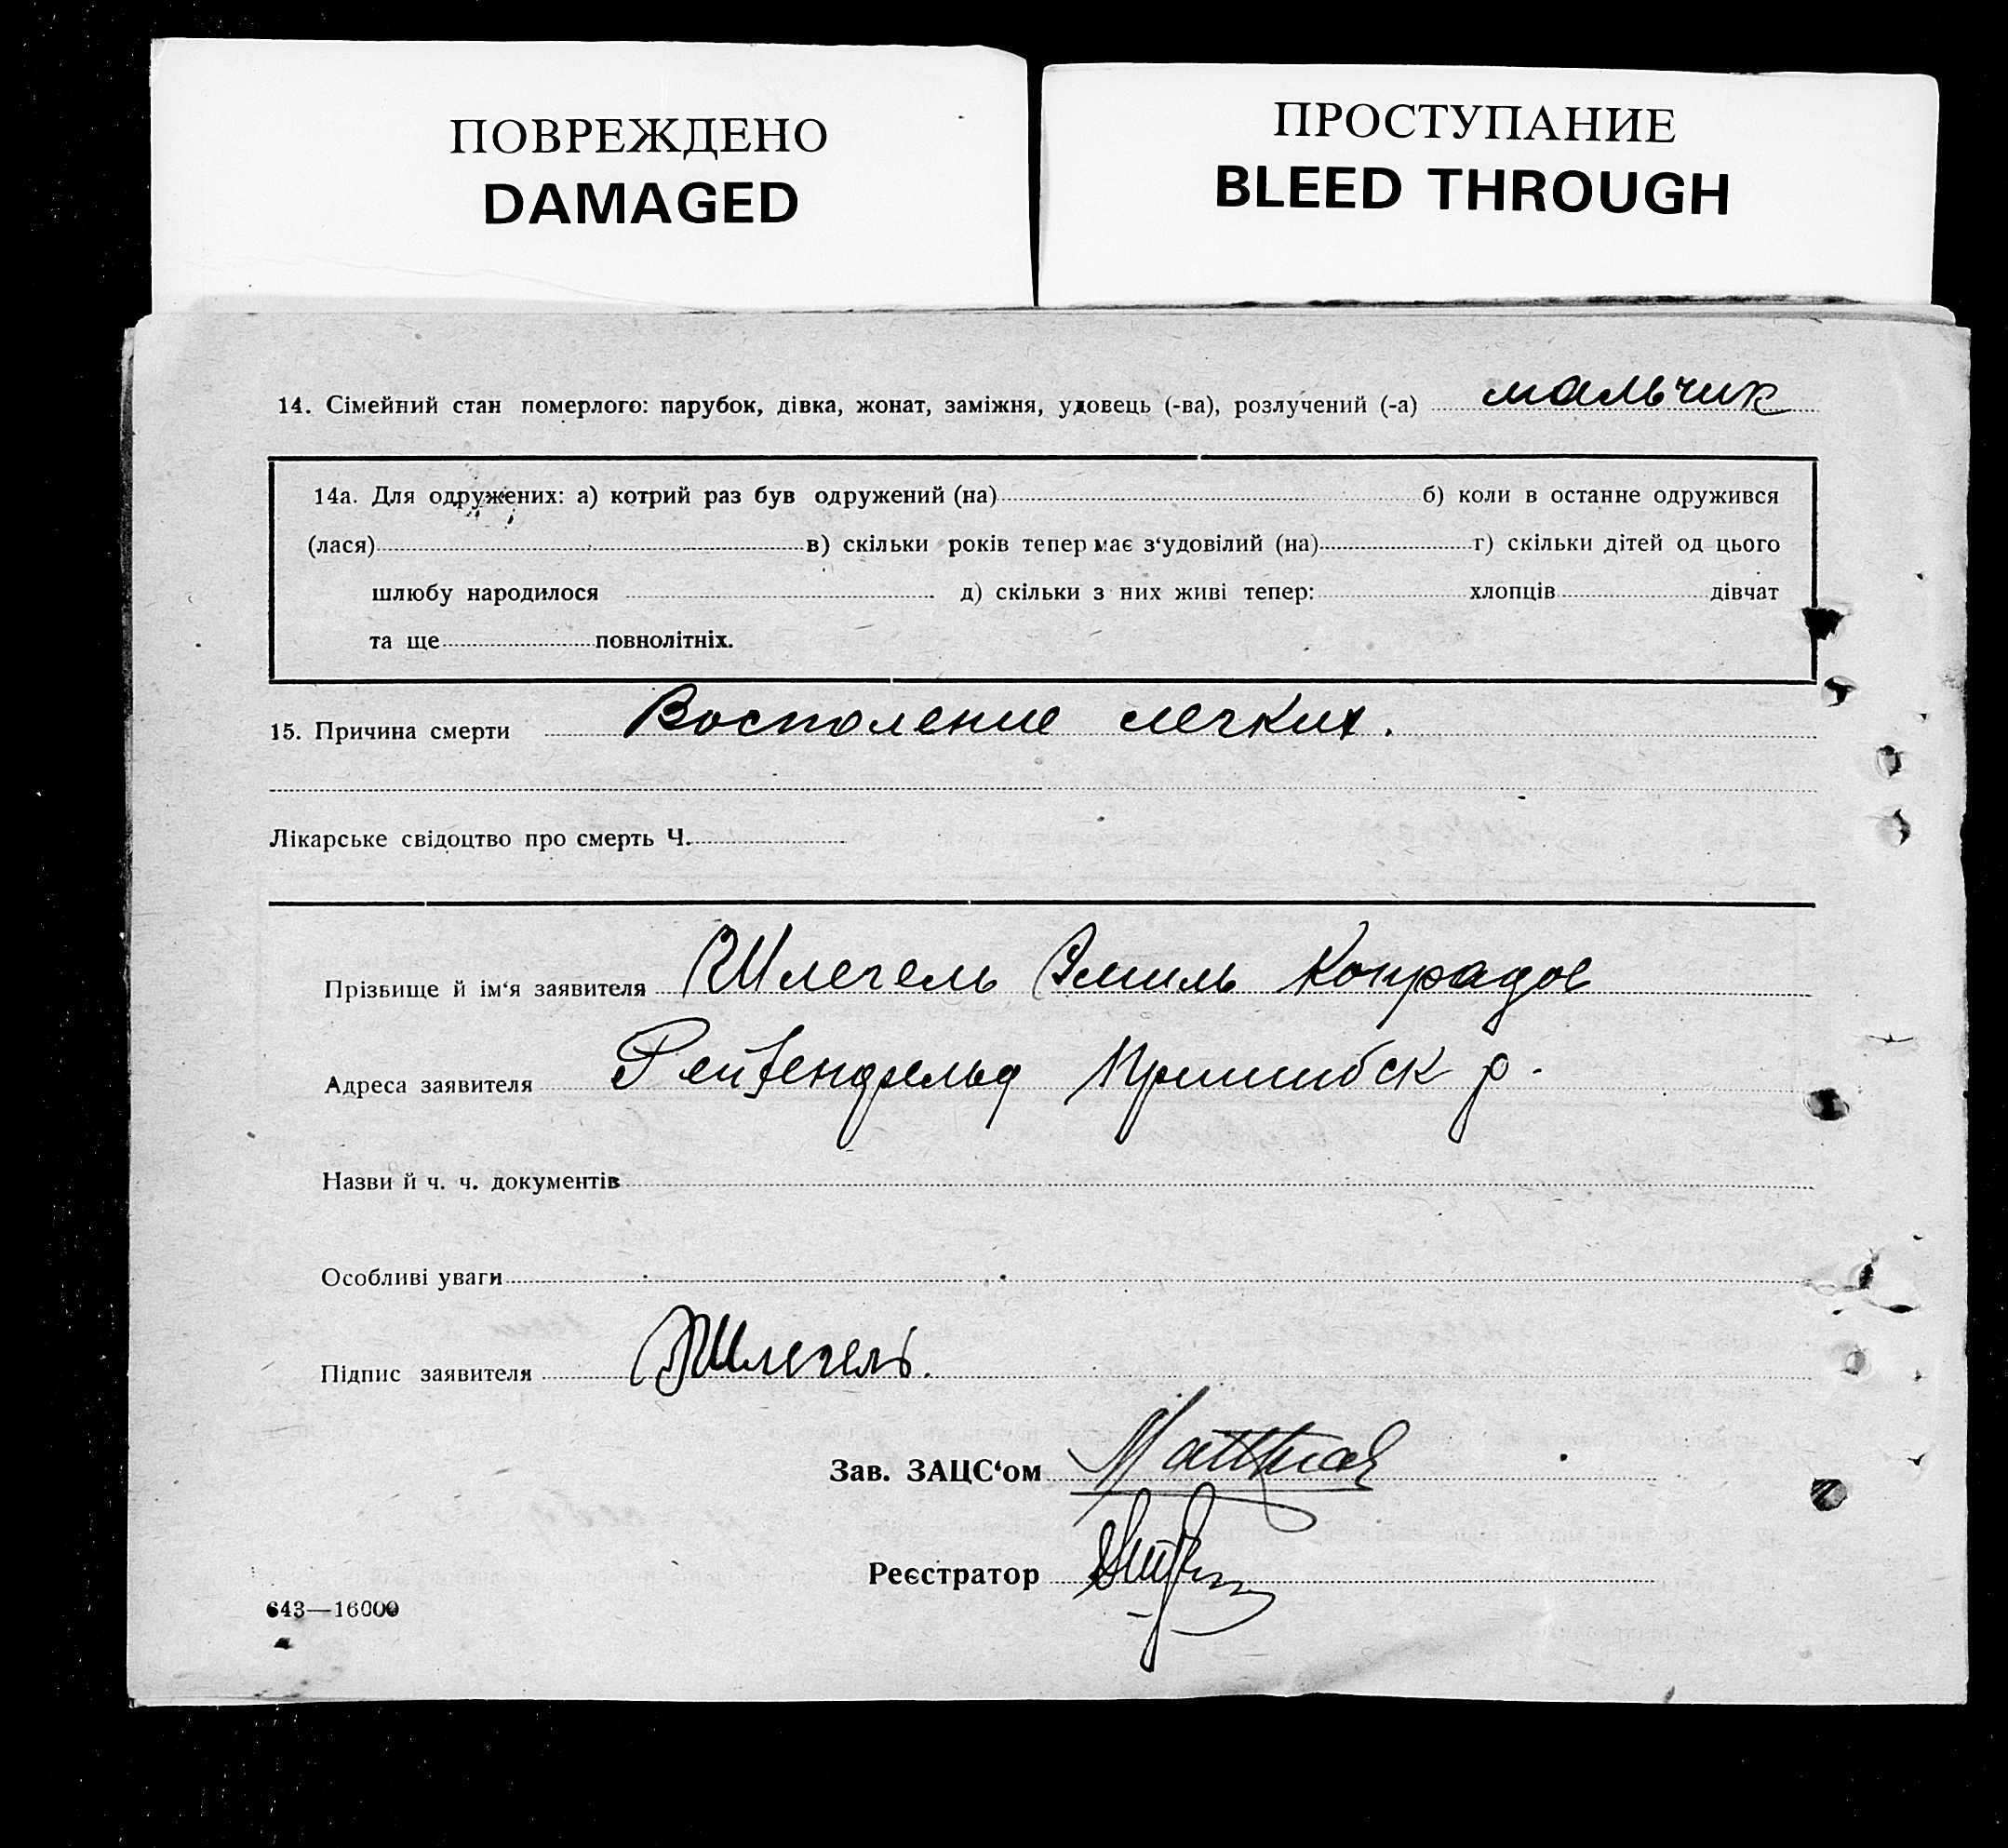 ПОВРЕЖДЕНО
DAMAGED
ПРОСТУПАНИЕ
BLEED THROUGH
14. Сімейний стан померлого: парубок, дівка, жонат, заміжня, удовець (-ва), розлучений (-а) мальчик
14а. Для одружених: а) котрий раз був одружений (на) б) коли в останне одружився
(лася) в) скільки років тепер має з‘удовілий (на) г) скільки дітей од цього
шлюбу народилося д) скільки з них живі тепер: хлопців дівчат
та ще повнолітніх.
15. Причина смерти Воспаление легких.
Лікарське свідоцтво про смерть Ч.
Прізвище й ім‘я заявителя Шлегель Эмиль Конрадов
Адреса заявителя Пришибск р.
Назви й ч. ч. документів
Особливі уваги
Підпис заявителя Шлегель.
Зав. ЗАЦС‘ом
Реєстратор
643—16000